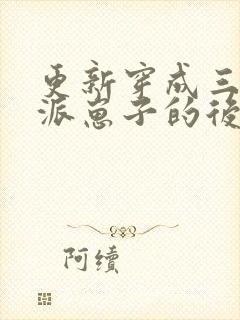 更新穿成三
派崽子的後
阿續